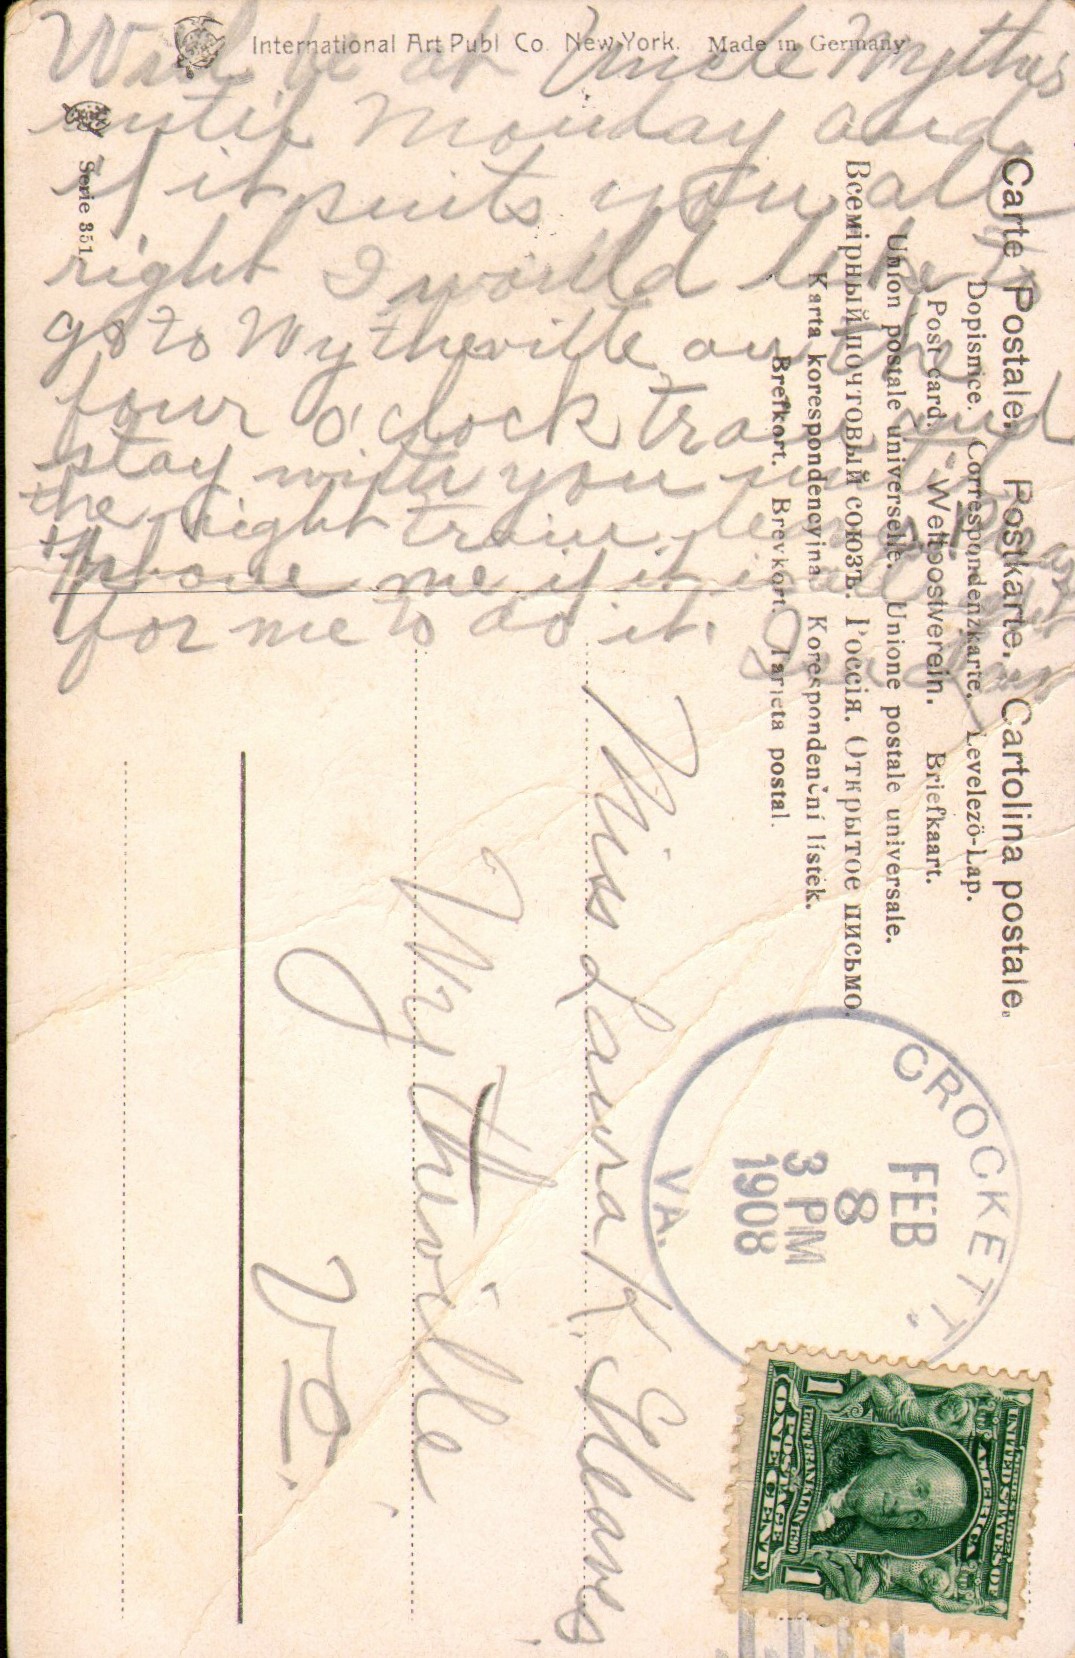 International Art Publ Co. New-York. Made in Germany
Serie 351
Will be at Uncle Mythus
until Monday and
if it suits you all
right I would like to
go to Wytheville on the
four o'clock train and
stay with you until
the night train
phone me if it is
for me to do it.
Carte Postale. Postkarte. Cartolina postale.
Dopisnice. Correspondenzkarte. Levelező-Lap.
Post card. Weltpostverein. Briefkaart.
Union postale universelle. Unione postale universale.
Всемірный почтовый союзъ. Россія. Открытое письмо.
Karta korespondencyjna. Korespondenční lístek.
Brefkort. Brevkort. Tarjeta postal.
CROCKETT.
FEB
8
3 PM
1908
VA.
UNITED STATES OF
AMERICA
FRANKLIN
POSTAGE
1 ONE CENT 1
Miss Laura K. Gleaves
Wytheville
Va.